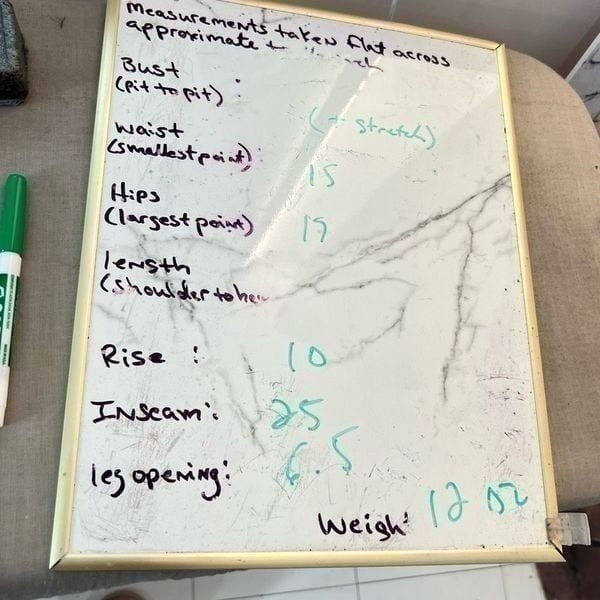 Measurements taken flat across
approximate
Bust :
(pit to pit)
(+ stretch)
waist
(smallest point):
15
Hips
(largest point)
19
length
(shoulder to
Rise : 10
Inseam: 25
leg opening: 6.5
Weigh: 12 oz